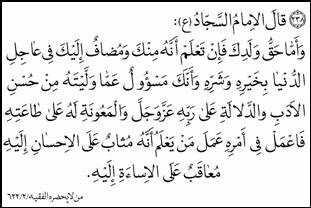 (٢٣١) قالَ الإمامُ السَّجادُ (ع):
وَأمّا حَقُّ وَلَدِكَ فَإنْ تَعْلَمَ أنَّهُ مِنْكَ وَمُضافٌ إلَيْكَ فِي عاجِلِ
الدُّنْيا بِخَيْرِهِ وَشَرِّهِ وَأنَّكَ مَسْؤُولٌ عَمّا وَلَّيْتَهُ مِنْ حُسْنِ
الأدَبِ وَالدَّلالَةِ عَلىٰ رَبِّهِ عَزَّ وَجَلَّ وَالْمَعُونَةِ لَهُ عَلىٰ طاعَتِهِ
فَاعْمَلْ فِي أمْرِهِ عَمَلَ مَنْ يَعْلَمُ أنَّهُ مُثابٌ عَلَى الاِحْسانِ إلَيْهِ
مُعاقَبٌ عَلَى الإساءَةِ إلَيْهِ.
من لا يحضره الفقيه/٢/٦٢٢